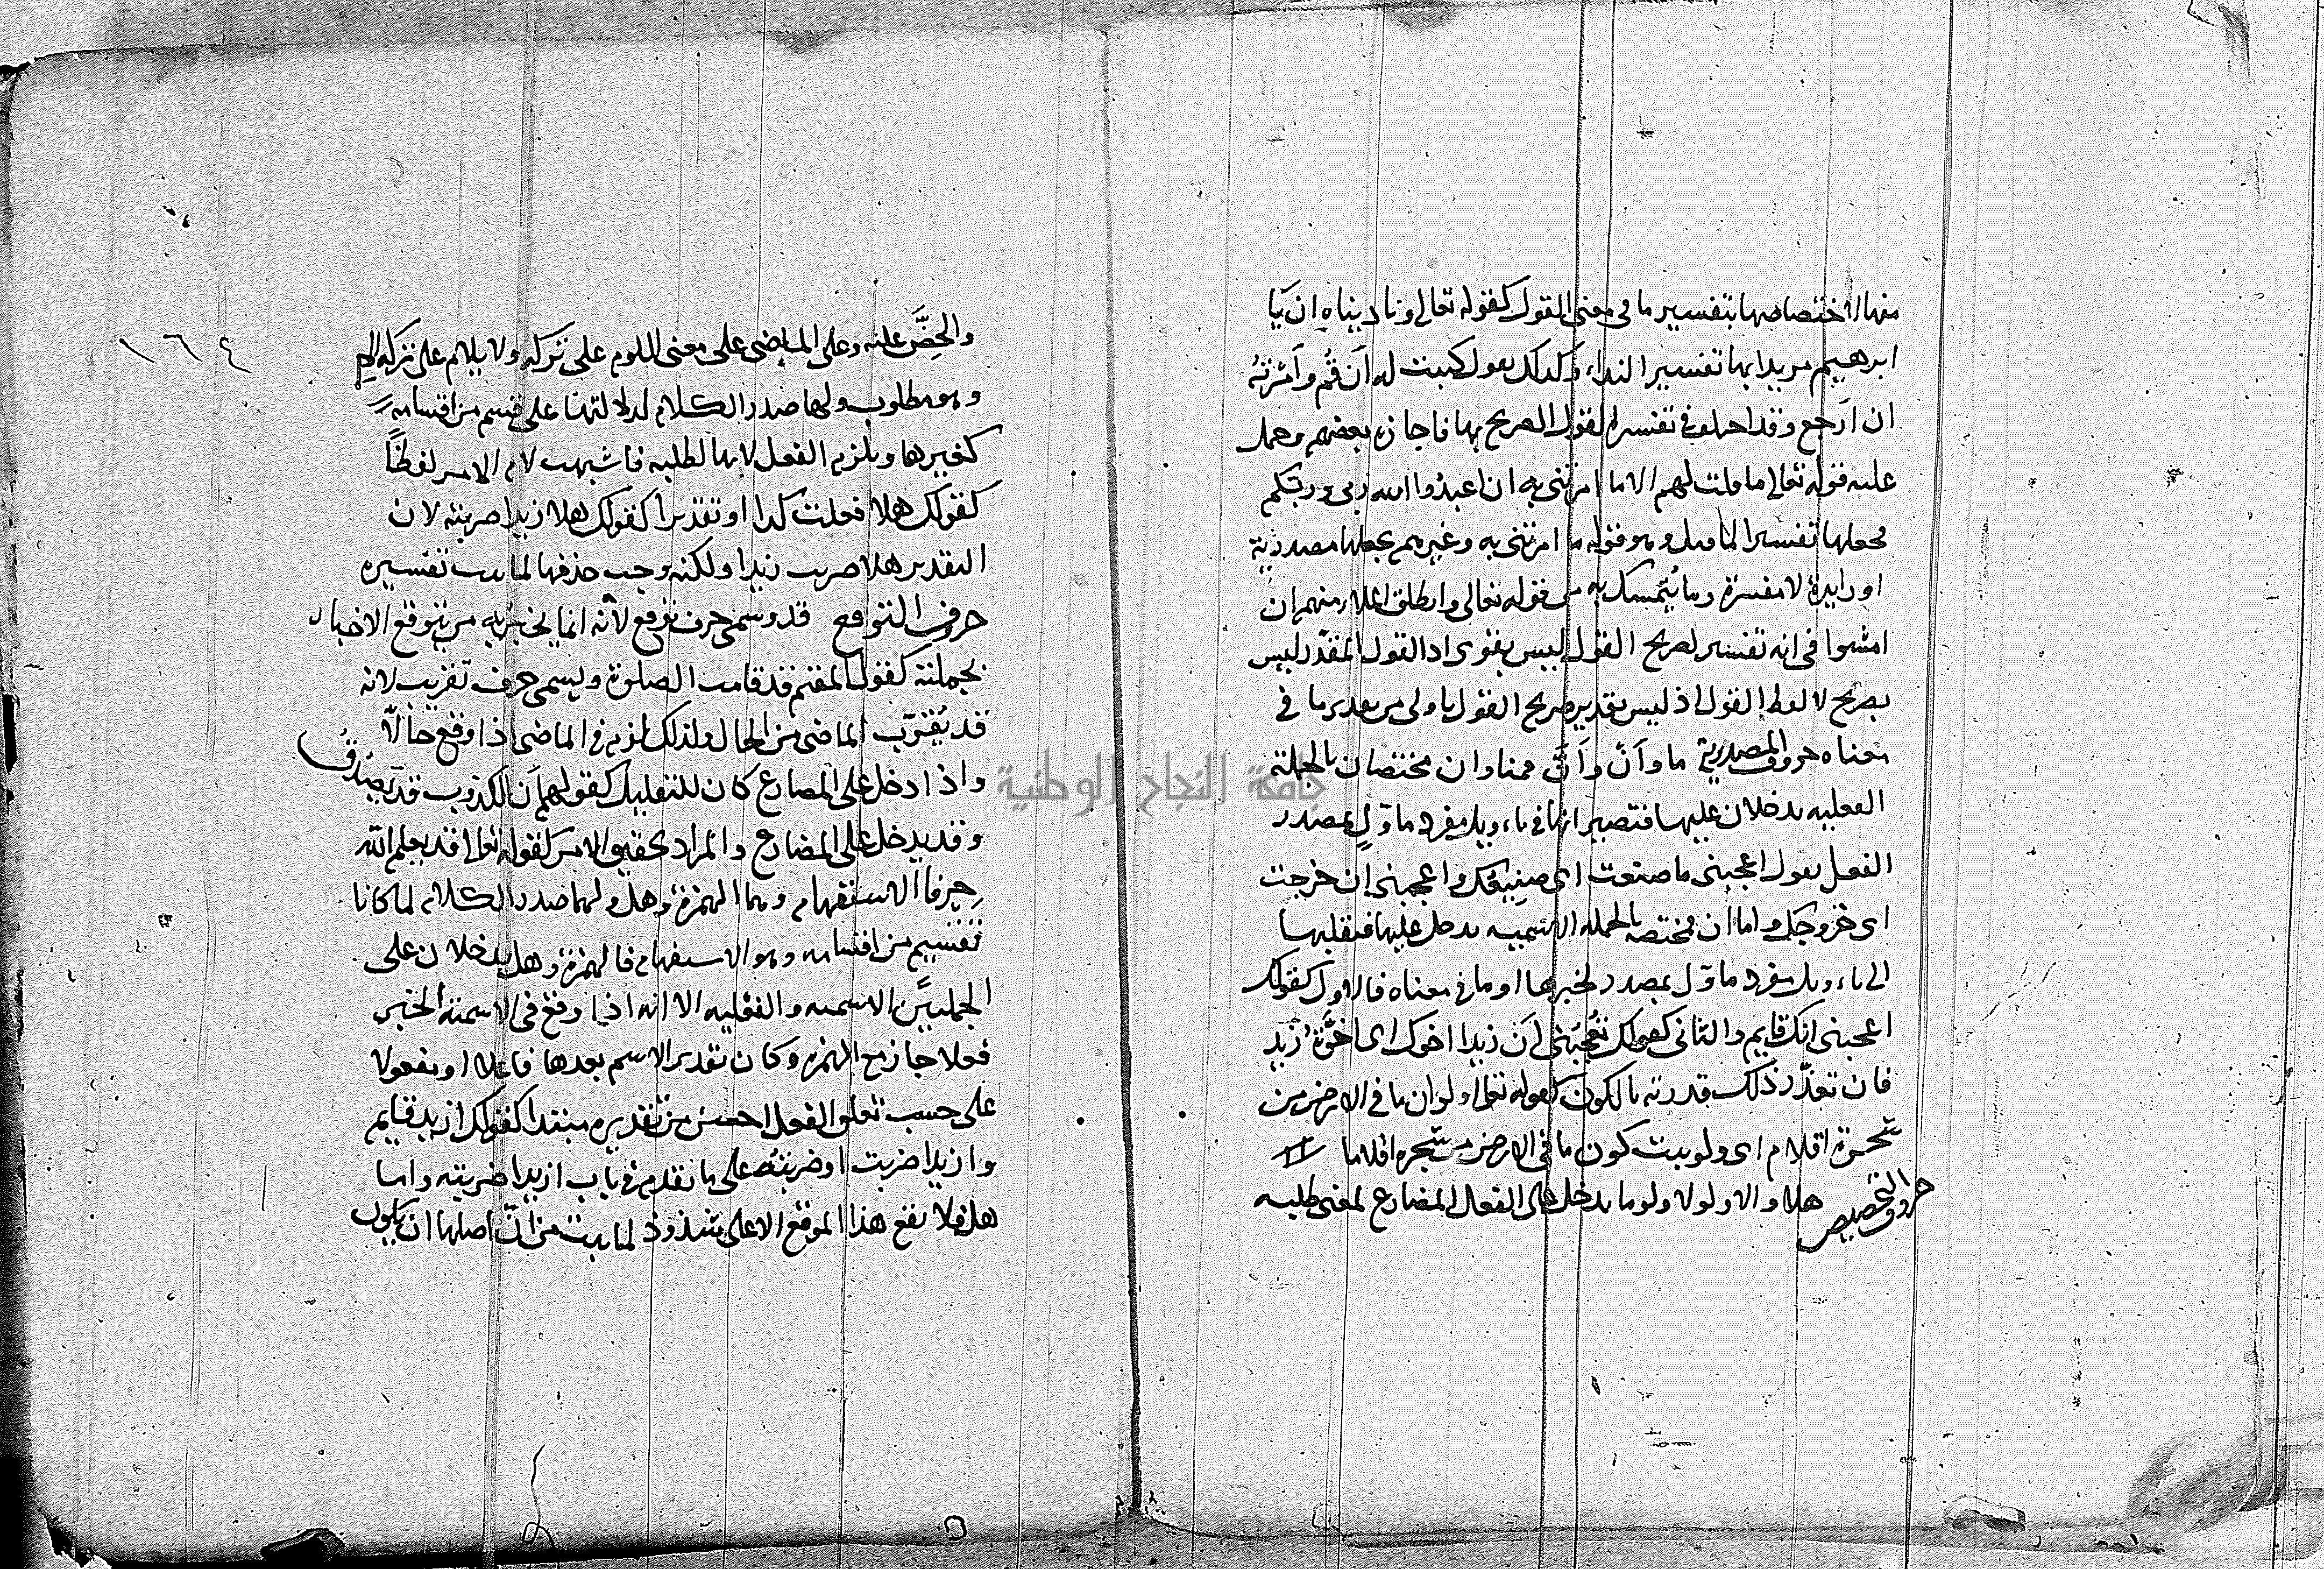 منها اختصاصها بتفسير ما في معنى القول كقوله تعالى وناديناه ان يا
ابرهيم مريدا بها تفسير النداء وكذلك تقول كتبت له أن قُم وأمرته
ان ارجع وقد في تفسير القول الصريح بها فاجازه بعضهم وحمل
عليه قوله تعالى ما قلت لهم الا ما امرتني به ان اعبدوا الله ربي وربكم
فجعلها تفسيرا وهو قوله ما امرتني به وغيرهم يجعلها مصدرية
او زايدة لا مفسرة وما يُتمسك به من قوله تعالى وانطلق الملاء منهم ان
امشوا في انه تفسير لصريح القول ليس بقوى اذ القول المقدّر ليس
بصريح القول اذ ليس تقدير صريح القول باولى من تقدير ما في
معناه حروف المصدرية ما وأنْ وأنّ فما وان مختصان بالجملة
الفعليه يدخلان عليها فتصير انها في تاويل مفرد ماوّل بمصدر
الفعل تقول اعجبني ما صنعت اى صنيعك واعجبني ان خرجت
اى خروجك واما ان مختصه بالجمله الاسميه يدخل عليها فتقلبها
الى تاويل مفرد ماوّل بمصدر لخبرها او ما في معناه فالاول كقولك
اعجبني انك قايم والثاني كقولك أن زيدا اخوك اى اخوّة زيد
فان تعذّر ذلك قدرته بالكون كقوله تعالى ولو ان ما في الارض من
شجرة اقلام اى ولو ثبت كون ما في الارض من شجره اقلاما
حروف التحضيض هلا والا ولولا ولوما يدخل على الفعل المضارع لمعنى طلبه
١٦٤
والحضّ عليه وعلى الماضي على معنى اللوم على تركه ولا يلام على تركه الا
وهو مطلوب ولها صدر الكلام لدلالتها على قسم من اقسامه
كغيرها ويلزم الفعل لانها لطلبه فاشبهت لام الامر لفظًا
كقولك هلا فعلت كذا او تقديرا كقولك هلا زيدا ضربته لان
التقدير هلا ضربت زيدا ولكنه وجب حذفها لما ثبت تفسيره
حروف التوقع قد وسمى حرف توقع لأنه انما يخبر به من يتوقع الاخبار
بجملته كقول المقيم قد قامت الصلوة ويسمى حرف تقريب لانه
قد يُقرّب الماضي من الحال ولذلك لزم في الماضي اذا وقع حالًا
واذا دخل على المضارع كان للتقليل كقولهم أن الكذوب قد يصدُقُ
وقد يدخل على المضارع والمراد تحقيق الامر كقوله تعالى قد يعلم الله
حرفا الاستفهام وهما الهمزة وهل ولهما صدر الكلام لما كانا
تقسيم من اقسامه وهو الاستفهام فالهمزة وهل يدخلان على
الجملتين الاسميه والفعليه الا انه اذا وقع في الاسمية الخبر
فعلا جاز مع الهمزه وكان تقدير الاسم بعدها فاعلا او مفعولا
على حسب تعلق الفعل احسن من تقديره مبتدا كقولك ازيد قايم
وازيدا ضربت او ضربته على ما تقدم في باب ازيدا ضربته واما
هل فلا يقع هذا الموقع الا على شذوذ لما ثبت من أنّ اصلها ان يكون
جامعة النجاح الوطنية